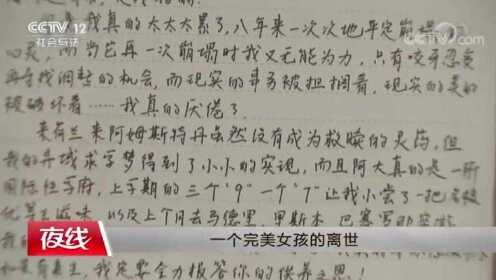 CCTV 12
社会与法
我真的太太太累了,八年来一次次地平定崩塌的
心灵,而当它再一次崩塌时我又无能为力,只有咬牙忍受
再寻找调整的机会,而现实的事务被担搁着,现实的美好
被破坏着……我真的厌倦了。
来荷兰来阿姆斯特丹虽然没有成为救赎的灵药,但
我的异域求学梦得到了小小的实现,而且阿大真的是一所
国际性学府,上学期的三个"9"一个"7"让我小尝了一把
优等生滋味,以及上个月去马德里、里斯本、巴塞罗那
我的
我定要全力报答你的供养之恩!
夜线
一个完美女孩的离世